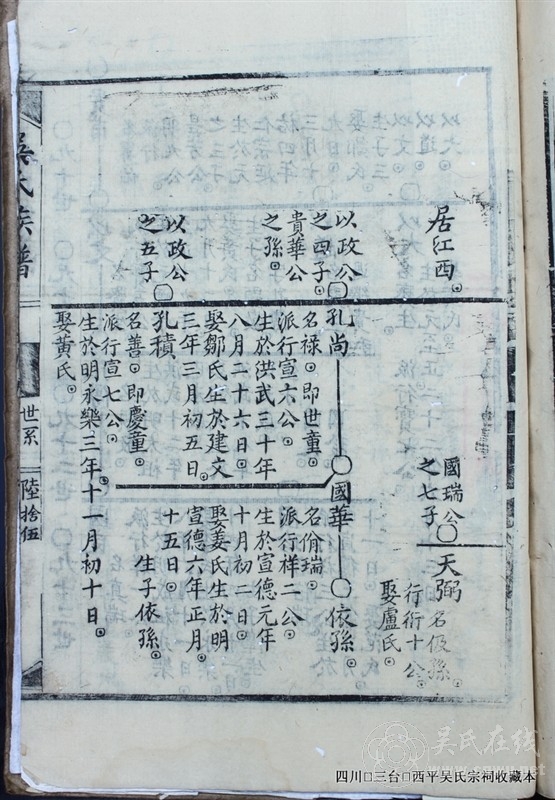 居江西。
國瑞公〇
之七子
天弼
名伋孫。
行衍十公。
娶盧氏。
以政公〇
之四子。
貴華公
之孫。
孔尚
名祿。即世童。
派行宣六公。
生於洪武三十年
八月二十六日。
娶鄒氏生於建文
三年三月初五日。
〇國華
名俏瑞。
派行样二公。
生於宣德元年
十月初二日。
娶姜氏生於明
宣德六年正月
十五日。
生子依孫。
〇依孫。
以政公〇
之五子
孔積
名善。即慶童。
派行宣七公。
生於明永樂三年十一月初十日。
娶黃氏。
吳氏族譜
世系
陸拾伍
吴氏在线
www.cnww.net
四川□三台□西平吴氏宗祠收藏本